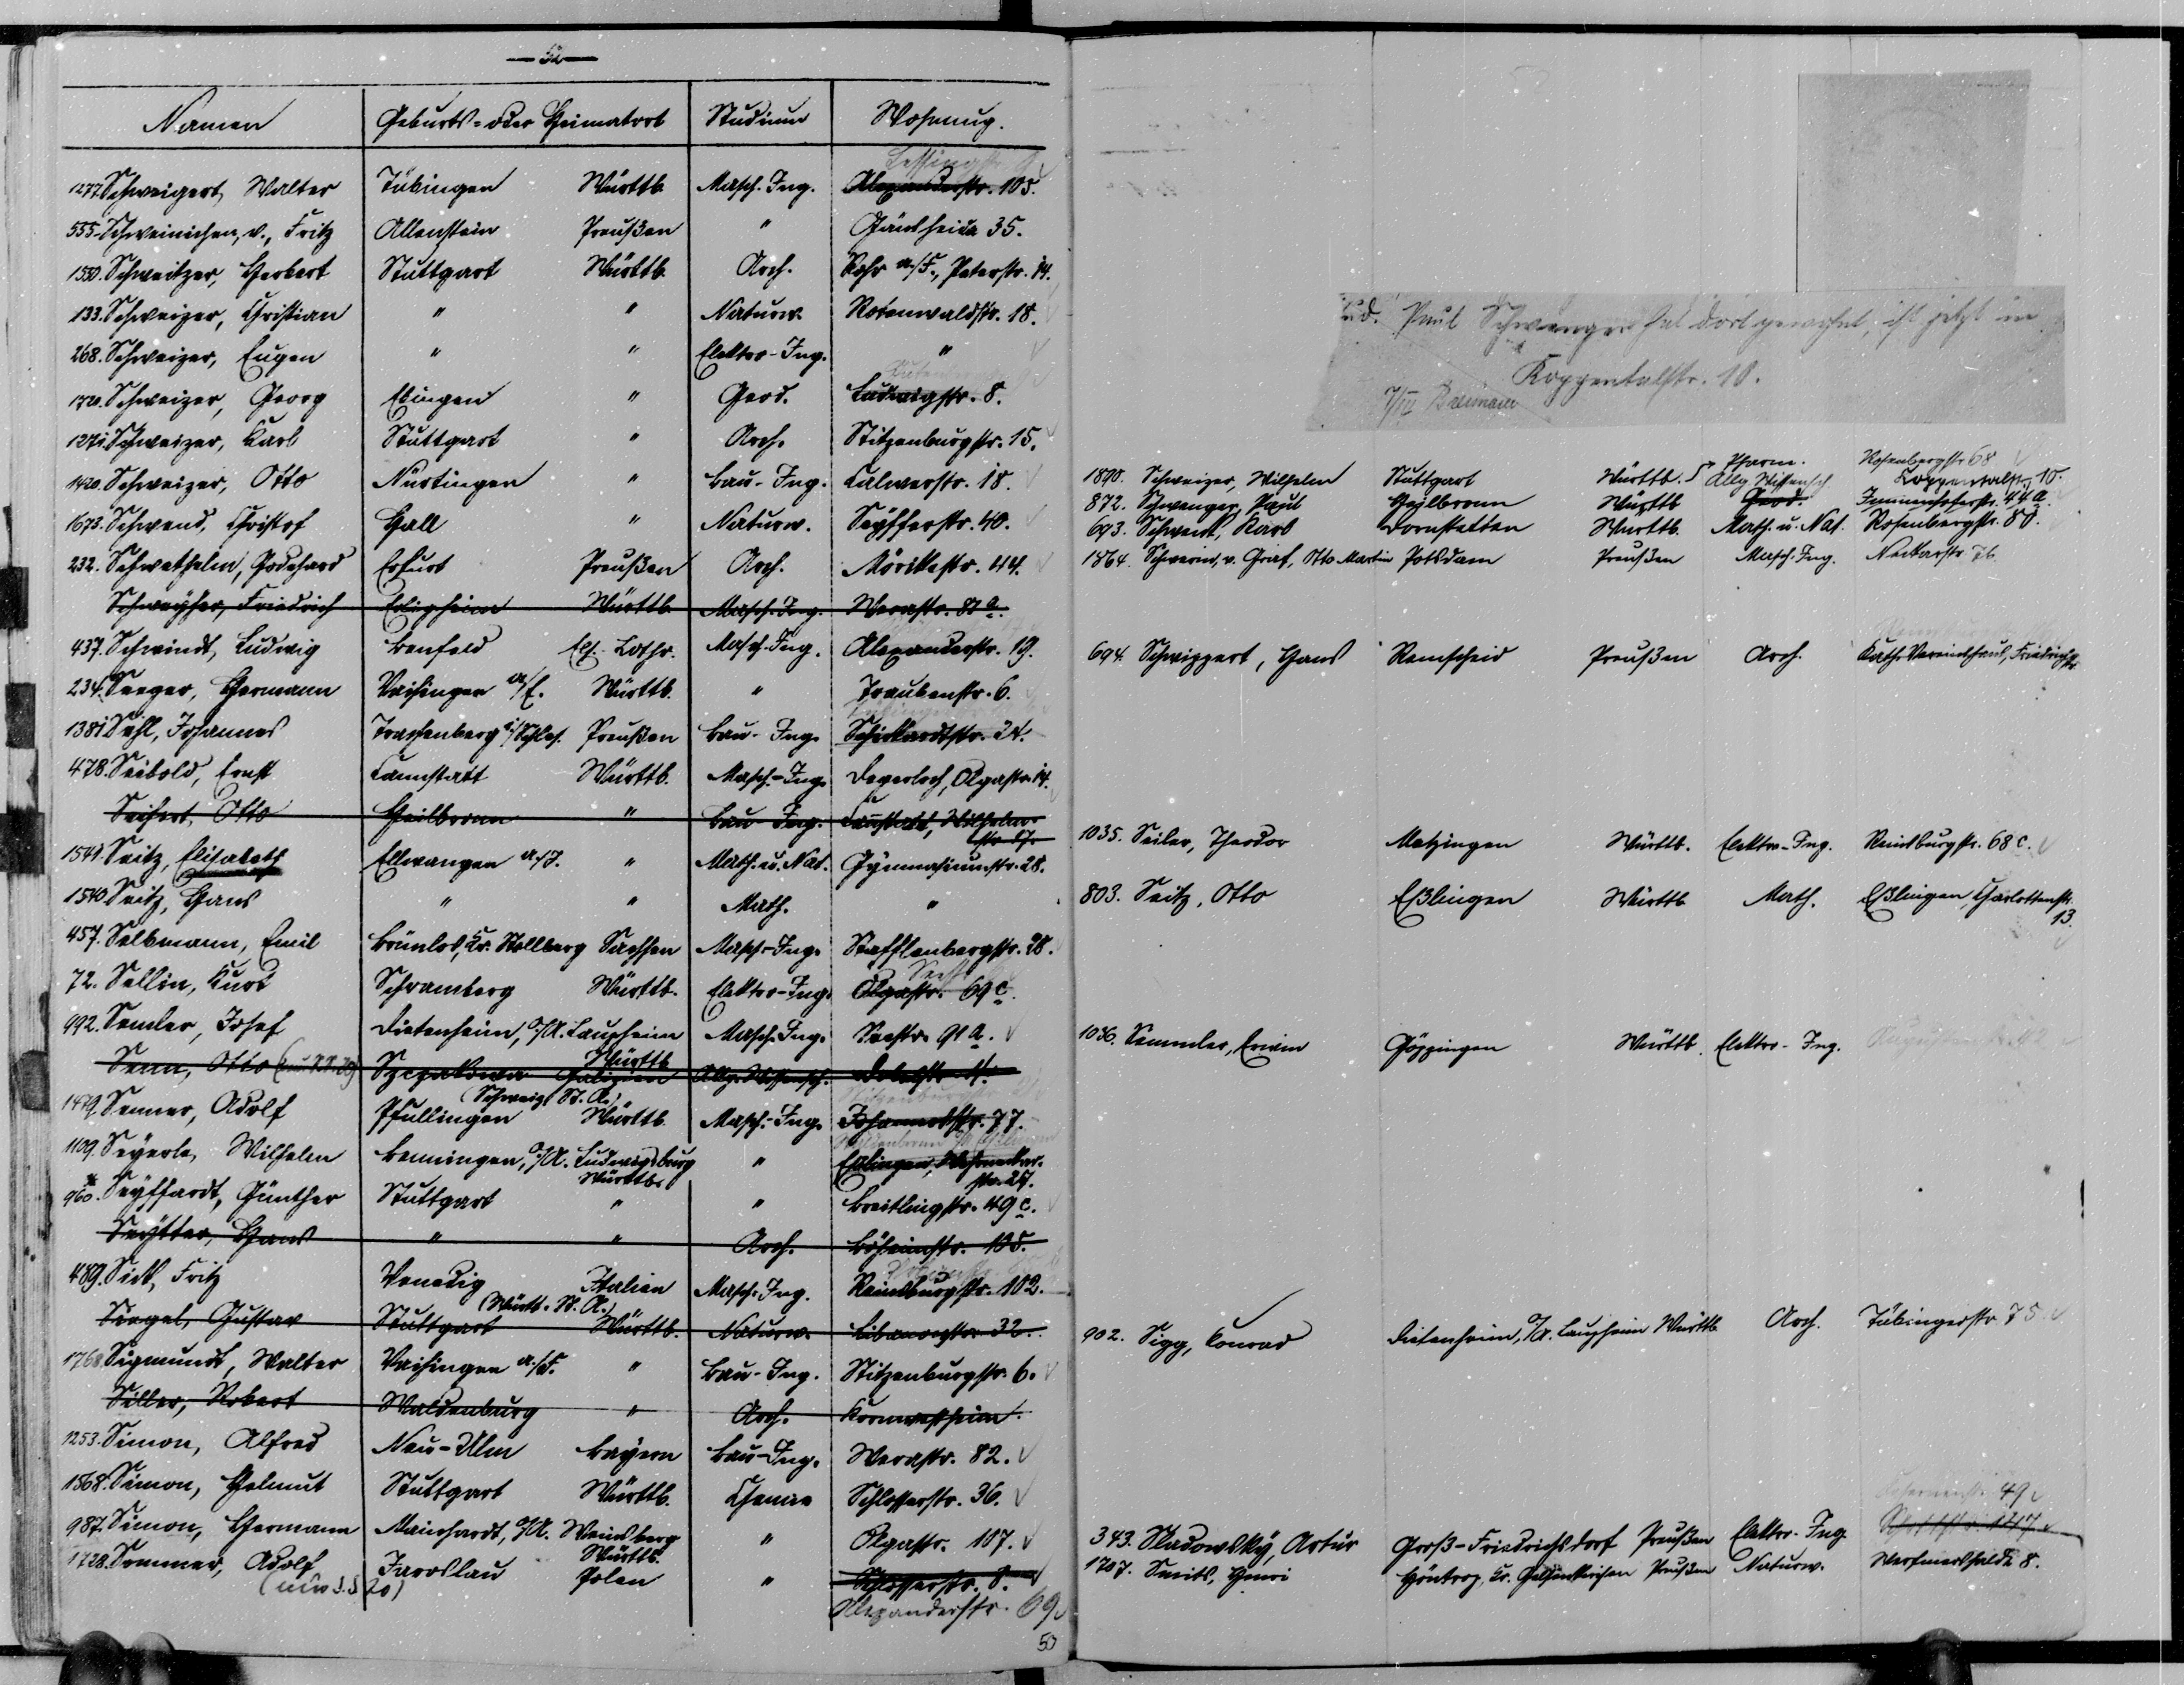 — 52 —
Namen Geburts- oder Heimatort Studium Wohnung.
Lessingstr.
1277. Schweigert, Walter Tübingen Württb. Masch. Ing. Alexanderstr. 105.
555. Schweinichen, v., Fritz Allenstein Preußen " Gänsheide 35.
1550. Schweitzer, Herbert Stuttgart Württb. Arch. Rohr a./F., Peterstr. 14.
133. Schweizer, Christian " " Naturw. Rotenwaldstr. 18.
268. Schweizer, Eugen " " Elektro-Ing. "
1720. Schweizer, Georg Ebingen " Geod. Ludwigstr. 8.
1271. Schweizer, Karl Stuttgart " Arch. Stitzenburgstr. 15.
1420. Schweizer, Otto Nürtingen " Bau-Ing. Calwerstr. 18.
1673. Schwend, Christof Hall " Naturw. Seyfferstr. 40.
232. Schwethelm, Godehard Erfurt Preußen Arch. Mörikestr. 44.
Schweyher, Friedrich Erligheim Württb. Masch. Ing. Werastr. 87 a.
437. Schwindt, Ludwig Benfeld Els. Lothr. Masch. Ing. Alexanderstr. 19.
234. Seeger, Hermann Vaihingen a/E. Württb. " Traubenstr. 6.
1381. Sehl, Johannes Trachenberg i/Schles. Preußen Bau-Ing. Schickardtstr. 24.
478. Seibold, Ernst Cannstatt Württb. Masch.-Ing. Degerloch, Olgastr. 14.
Seifert, Otto Heilbronn " Bau-Ing. Cannstatt, Wilhelm-
str. 17.
1541. Seitz, Elisabeth Ellwangen a./J. " Math. u. Nat. Gymnasiumstr. 28.
1540. Seitz, Hans " " Math. "
457. Selbmann, Emil Brünlos, Kr. Stollberg Sachsen Masch.-Ing. Stafflenbergstr. 28.
72. Sellin, Kurt Schramberg Württb. Elektro-Ing. Olgastr. 69 c.
992. Semler, Josef Dietenheim, O/A. Laupheim Masch. Ing. Seestr. 91 a.
Württb.
Senn, Otto Szczakowa Galizien Allg. Wissensch.
(Schweiz. St. A.)
1479. Senner, Adolf Pfullingen Württb. Masch.-Ing. Johannesstr. 77.
1109. Seyerle, Wilhelm Benningen, O/A. Ludwigsburg " Eßlingen,
Württb. str. 27.
960. Seyffardt, Günther Stuttgart " " Breitlingstr. 49 c.
Seytter, Hans " " Arch. Böheimstr. 105.
489. Sick, Fritz Venedig Italien Masch. Ing. Reinsburgstr. 102.
(Württ. St. A.)
Siegel, Gustav Stuttgart Württb. Naturw. Libanonstr. 32.
1768. Sigmund, Walter Vaihingen a./F. " Bau-Ing. Stitzenburgstr. 6.
Siller, Robert Waldenburg " Arch. Kornwestheim.
1253. Simon, Alfred Neu-Ulm Bayern Bau-Ing. Werastr. 82.
1568. Simon, Helmut Stuttgart Württb. Chemie Schlosserstr. 36.
987. Simon, Hermann Mainhardt, O/A. Weinsberg " Olgastr. 107.
Württb.
1728. Sommer, Adolf Jaroslau Polen " Schlosserstr. 8.
Alexanderstr. 69
50
Paul Schwenger hat dort gewohnt, ist jetzt in
Koppentalstr. 10.
Pharm. Rosenbergstr. 68
1890. Schweizer, Wilhelm Stuttgart Württb. Allg. Wissensch. Koppentalstr. 10.
872. Schwenger, Paul Heilbronn Württb. Geod. Immenhoferstr. 44 a.
693. Schwenk, Karl Dornstetten Württb. Math. u. Nat. Rosenbergstr. 80.
1864. Schwerin, v. Graf, Otto Martin Potsdam Preußen Masch. Ing. Neckarstr. 76
694. Schwippert, Hans Remscheid Preußen Arch. Kath. Vereinshaus, Friedrichstr.
1035. Seiler, Theodor Metzingen Württb. Elektro-Ing. Reinsburgstr. 68 c.
803. Seitz, Otto Eßlingen Württb. Math. Eßlingen, Charlottenstr.
13.
1036. Semmler, Erwin Göppingen Württb. Elektro-Ing. Augustenstr. 42
902. Sigg, Konrad Dietenheim, O/A. Laupheim Württb. Arch. Tübingerstr. 75.
49
343. Skadowsky, Artur Groß-Friedrichsdorf Preußen Elektro-Ing.
1707. Smits, Henri Höntrop, Kr. Gelsenkirchen Preußen Naturw. Werfmershalde 8.